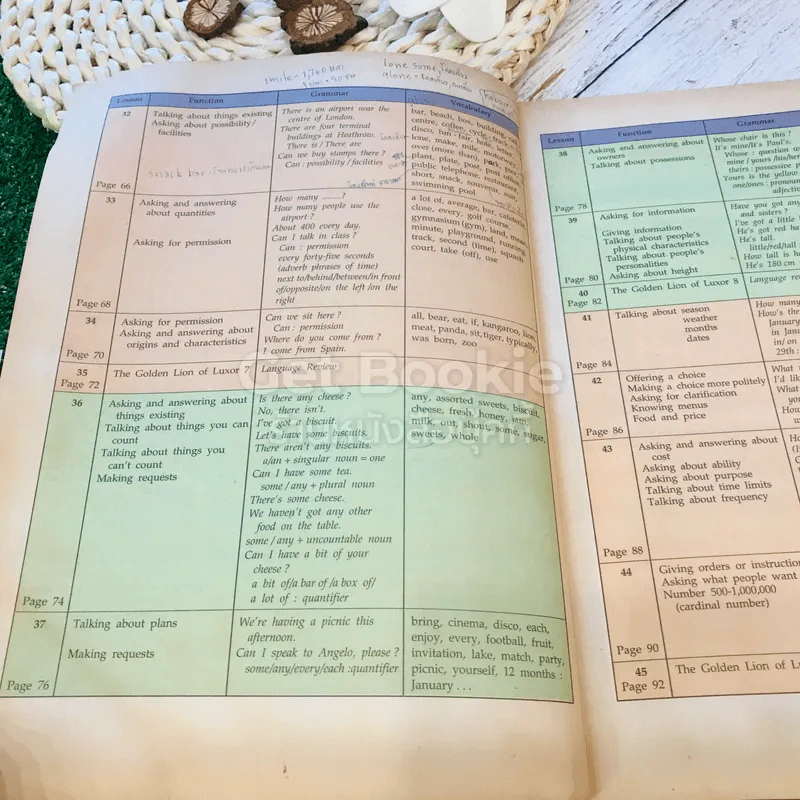 1 mile = 1,760
lone some
alone =
Lesson
Function
Grammar
Vocabulary
32
Page 66
Talking about things existing
Asking about possibility/
facilities
snack bar :
There is an airport near the
centre of London.
There are four terminal
buildings at Heathrow.
There is / There are
Can we buy stamps there ?
Can : possibility / facilities
bar, beach, box, building, call,
centre, coffee, cycle, tract,
disco, fun - fair, hole, letter,
lose, make, mile, motorway,
over (more than), pool,
plant, plate, post, post office,
public telephone, restaurant,
short, snack, souvenir, suit,
swimming pool
33
Page 68
Asking and answering
about quantities
Asking for permission
How many ........?
How many people use the
airport ?
About 400 every day.
Can I talk in class ?
Can : permission
every forty-five seconds
(adverb phrases of time)
next to/behind/between/in front
of/opposite/on the left/on the
right
a lot of, average, bar, cafeteria,
close, every, golf course,
gymnasium (gym), land, meet,
minute, playground, running
track, second (time), squash
court, take (off), use
34
Page 70
Asking for permission
Asking and answering about
origins and characteristics
Can we sit here ?
Can : permission
Where do you come from ?
I come from Spain.
all, bear, eat, if, kangaroo, lion,
meat, panda, sit, tiger, typically,
was born, zoo
35
Page 72
The Golden Lion of Luxor 7
Language Review
36
Page 74
Asking and answering about
things existing
Talking about things you can
count
Talking about things you
can't count
Making requests
Is there any cheese ?
No, there isn't.
I've got a biscuit.
Let's have some biscuits.
There aren't any biscuits.
a/an + singular noun = one
Can I have some tea.
some / any + plural noun
There's some cheese.
We haven't got any other
food on the table.
some / any + uncountable noun
Can I have a bit of your
cheese ?
a bit of/a bar of /a box of/
a lot of : quantifier
any, assorted sweets, biscuit,
cheese, fresh, honey, jam,
milk, out, shout, some, sugar,
sweets, whole
37
Page 76
Talking about plans
Making requests
We're having a picnic this
afternoon.
Can I speak to Angelo, please ?
some/any/every/each :quantifier
bring, cinema, disco, each,
enjoy, every, football, fruit,
invitation, lake, match, party,
picnic, yourself, 12 months :
January . . .
Lesson
Function
Grammar
38
Page 78
Asking and answering about
owners
Talking about possessions
Whose chair is this ?
It's mine/It's Paul's.
Whose : question
mine / yours /his/her
theirs : possessive
Yours is the yellow
one/ones : pronoun
adjecti
39
Page 80
Asking for information
Giving information
Talking about people's
physical characteristics
Talking about people's
personalities
Asking about height
Have you got any
and sisters ?
I've got a little
He's got red ha
He's tall.
little/red/tall
How tall is h
He's 180 cm
40
Page 82
The Golden Lion of Luxor 8
Language re
41
Page 84
Talking about season
weather
months
dates
How many
How's the
January
in Janu
in/on
29th :
42
Page 86
Offering a choice
Making a choice more politely
Asking for clarification
Knowing menus
Food and price
What
I'd lik
What
yo
H
w
43
Page 88
Asking and answering about
cost
Asking about ability
Asking about purpose
Talking about time limits
Talking about frequency
44
Page 90
Giving orders or instruction
Asking what people want
Number 500-1,000,000
(cardinal number)
45
Page 92
The Golden Lion of Lu
Get Bookie